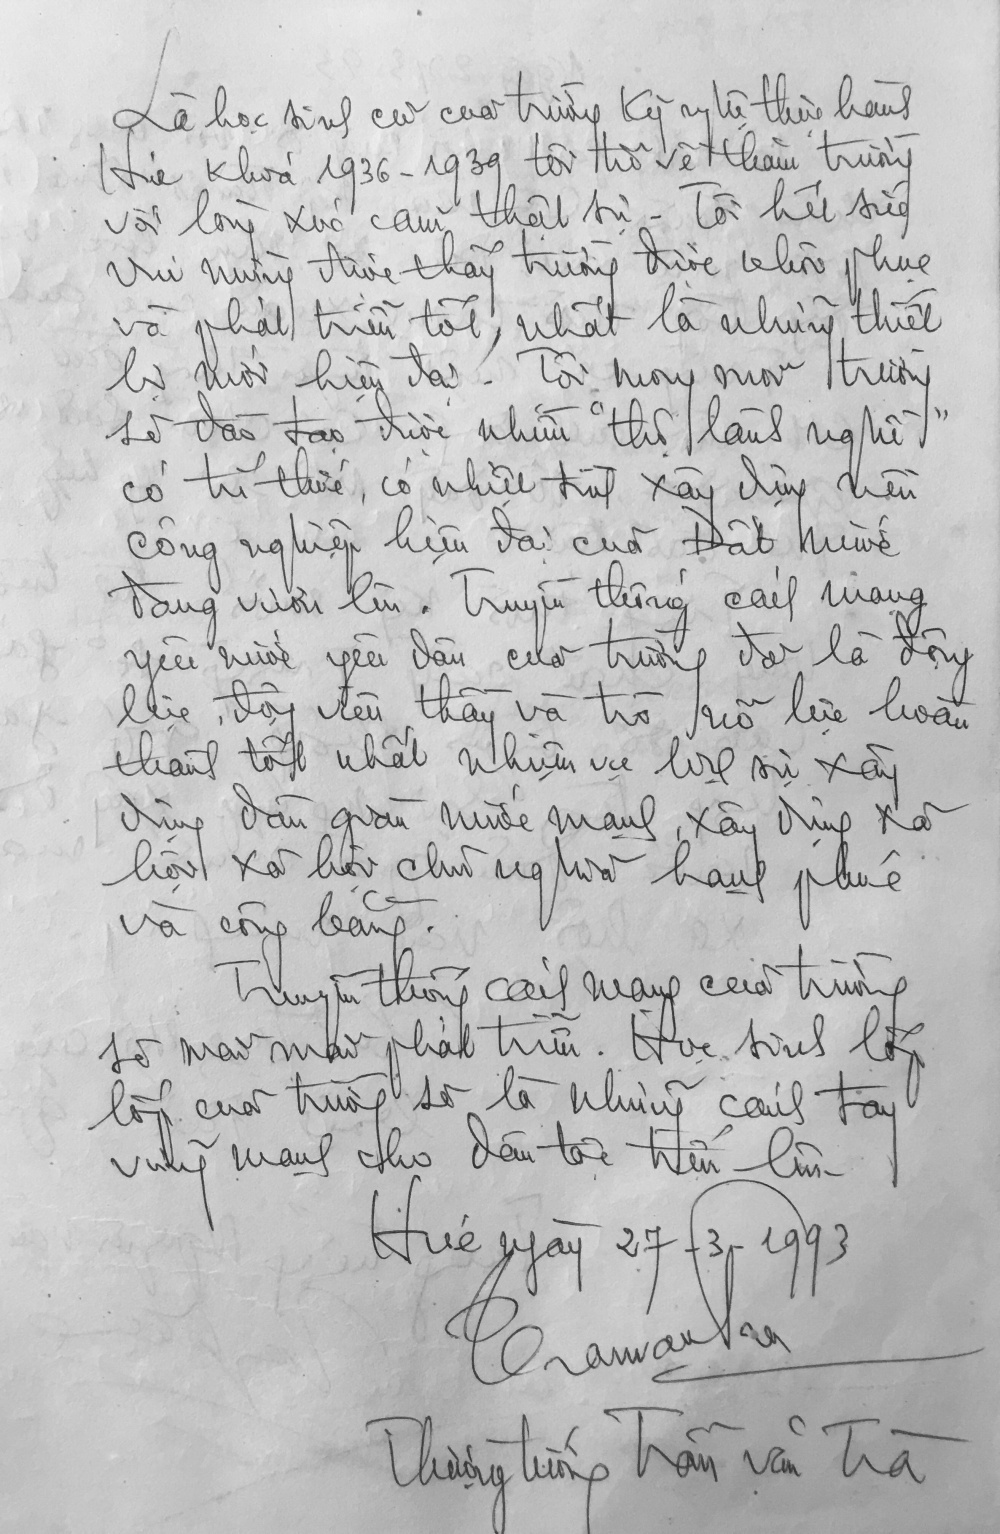 Là học sinh cũ của trường Kỹ nghệ thực hành
Huế khoá 1936-1939 tôi trở về thăm trường
với lòng xúc cảm thật sự - Tôi hết sức
vui mừng được thấy trường được khôi phục
và phát triển tốt, nhất là những thiết
bị mới hiện đại. Tôi mong mỏi trường
sẽ đào tạo được nhiều "thợ lành nghề"
có trí thức, có nhiệt tình xây dựng nền
công nghiệp hiện đại của Đất nước
đang vươn lên. Truyền thống cách mạng
yêu nước yêu dân của trường đã là động
lực, động viên thầy và trò nỗ lực hoàn
thành tốt nhất nhiệm vụ lịch sử xây
dựng dân giàu nước mạnh, xây dựng xã
hội xã hội chủ nghĩa hạnh phúc
và công bằng.
Truyền thống cách mạng của trường
sẽ mãi mãi phát triển. Học sinh lớp
lớp của trường sẽ là những cánh tay
vững mạnh cho dân tộc tiến lên-
Huế ngày 27-3-1993
Tranvantra
Thượng tướng Trần văn Trà